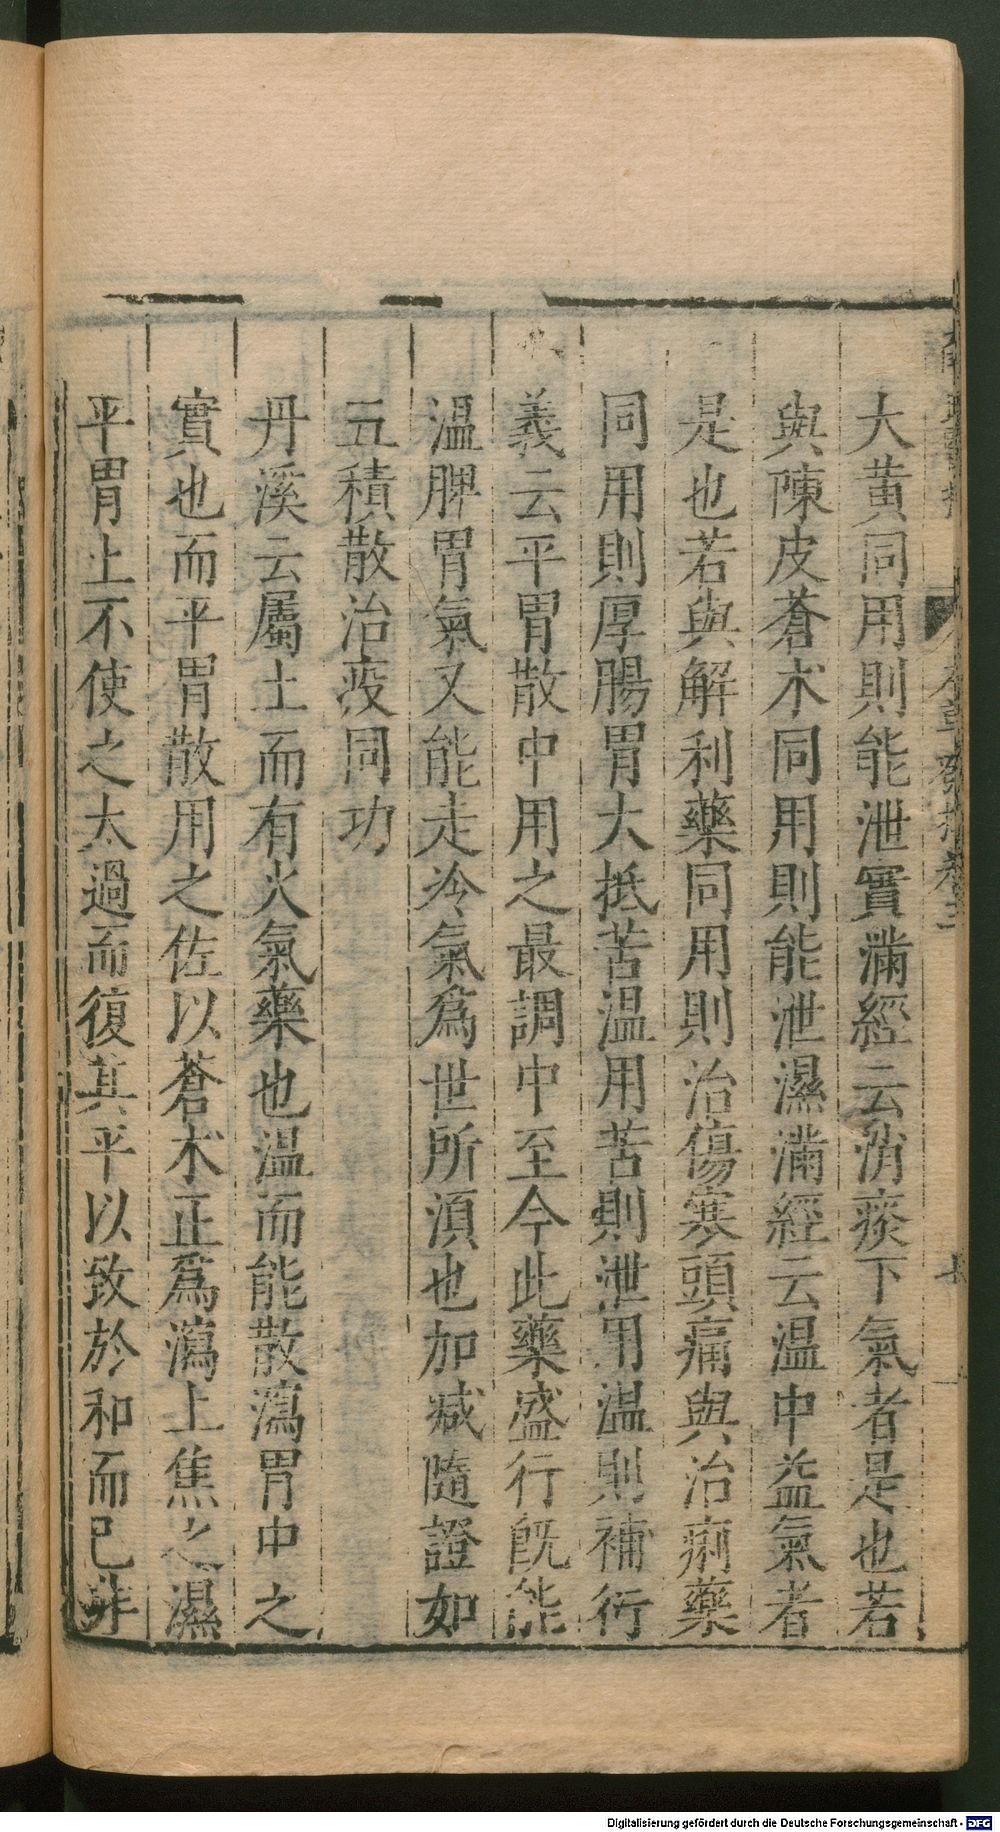 大黄同用則能泄實滿經云消痰下氣者是也若
與陳皮蒼术同用則能泄濕滿經云温中益氣者
是也若與解利藥同用則治傷寒頭痛與治痢藥
同用則厚腸胃大抵苦温用苦則泄用温則補衍
義云平胃散中用之最調中至今此藥盛行既能
温脾胃氣又能走冷氣爲世所湏也加减隨證如
五積散治疫同功
丹溪云屬土而有火氣藥也温而能散瀉胃中之
實也而平胃散用之佐以蒼术正爲瀉上焦之濕
平胃上不使之太過而復其平以致於和而已非
Digitalisierung gefördert durch die Deutsche Forschungsgemeinschaft - DFG